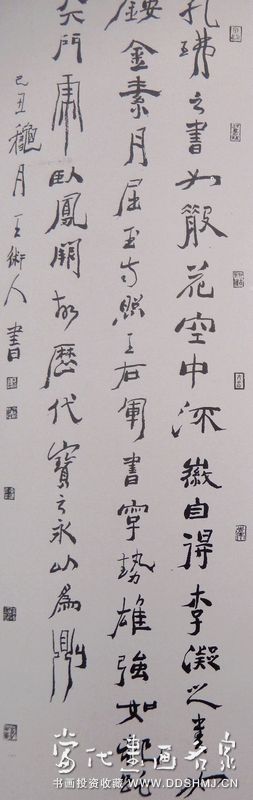 孔琳之書如散花空中流徽自得李凝之書如
鏤金素月屈玉自照王右軍書字勢雄強如龍跳
天門虎臥鳳闕故歷代寶之永以為
己丑穐月王術人書
当代书画名家
书画投资收藏 WWW.DDSHMJ.CN